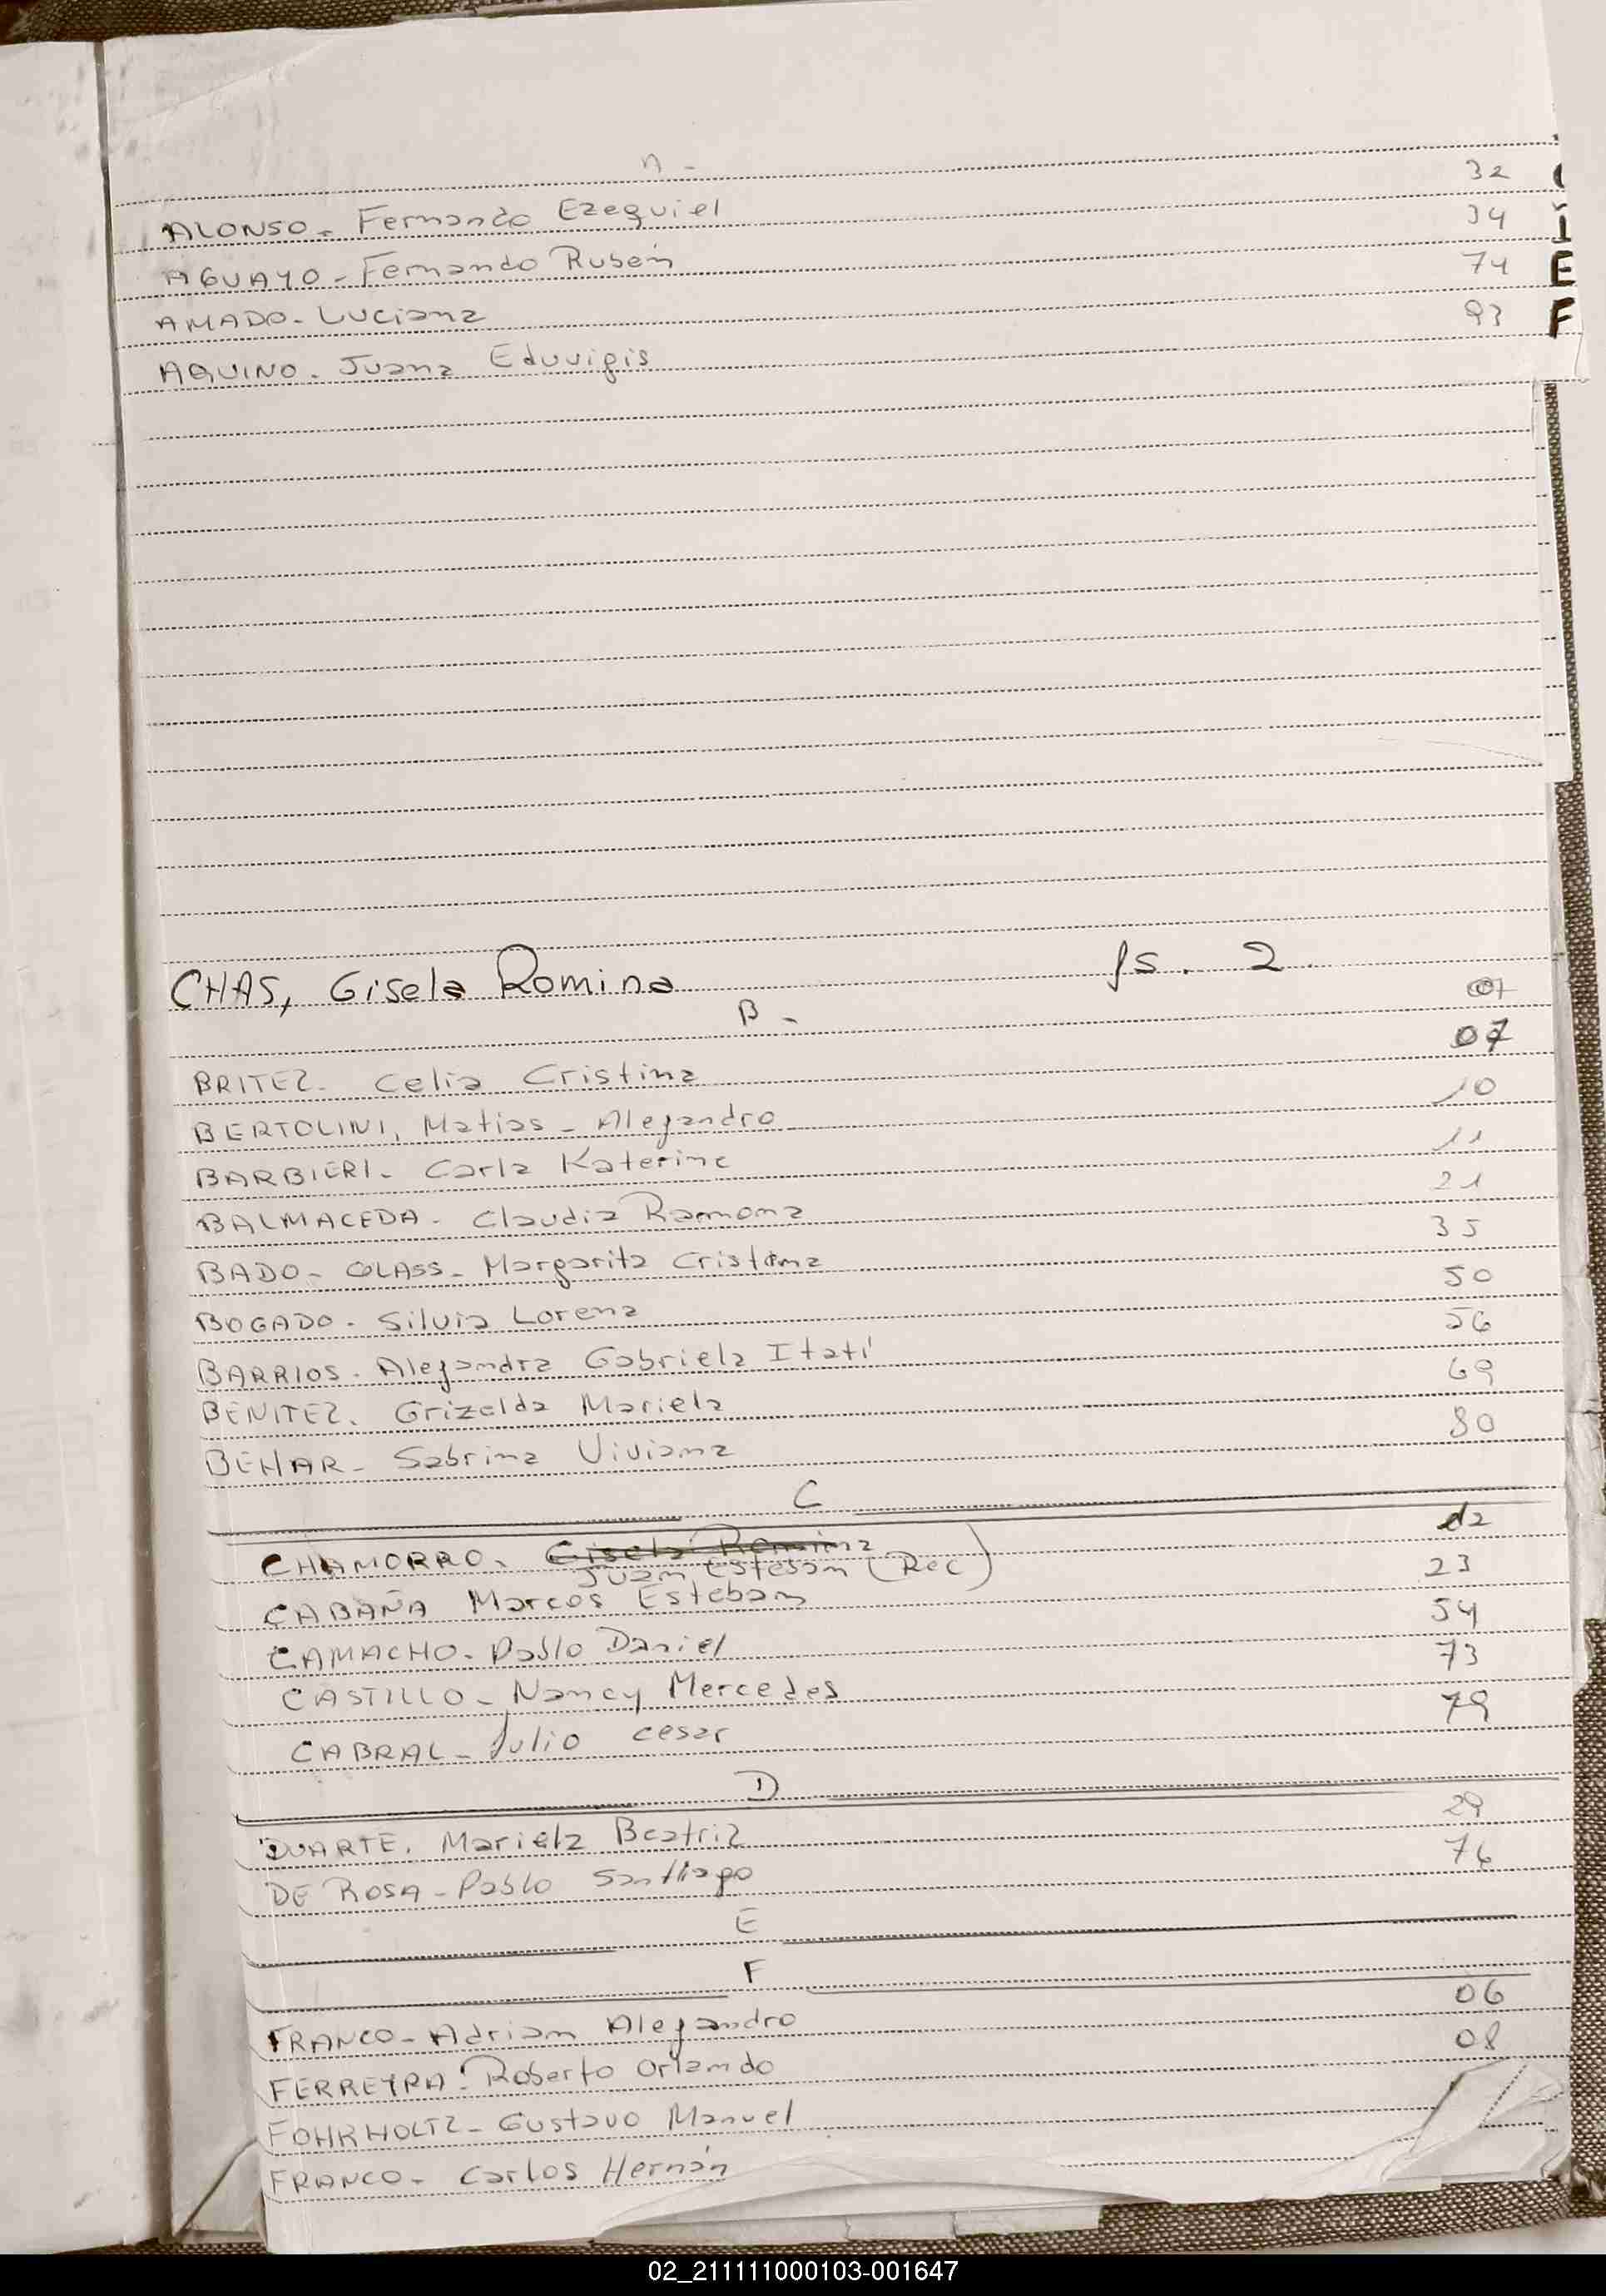 A -
ALONSO - Fernando Ezequiel 32
AGUAYO - Fernando Rubén 34
AMADO - Luciana 74
AQUINO - Juana Eduvigis 93
I
E
F
CHAS, Gisela Romina fs. 2
B -
BRITEZ - Celia Cristina 07
BERTOLINI, Matias - Alejandro 10
BARBIERI - Carla Katerine 11
BALMACEDA - Claudia Ramona 21
BADO - GLASS - Margarita Cristina 35
BOGADO - Silvia Lorena 50
BARRIOS - Alejandra Gabriela Itatí 56
BENITEZ. Grizelda Mariela 69
BEHAR - Sabrina Viviana 80
C
CHAMORRO - Gisela Romina
Juan Esteban (Rec)
CABAÑA Marcos Esteban 23
CAMACHO - Pablo Daniel 54
CASTILLO - Nancy Mercedes 73
CABRAL - Julio cesar 79
D
DUARTE, Mariela Beatriz 29
DE ROSA - Pablo Santiago 76
E
F
FRANCO - Adrian Alejandro 06
FERREYRA - Roberto Orlando 08
FOHRHOLTZ - Gustavo Manuel
FRANCO - Carlos Hernán
02_211111000103-001647